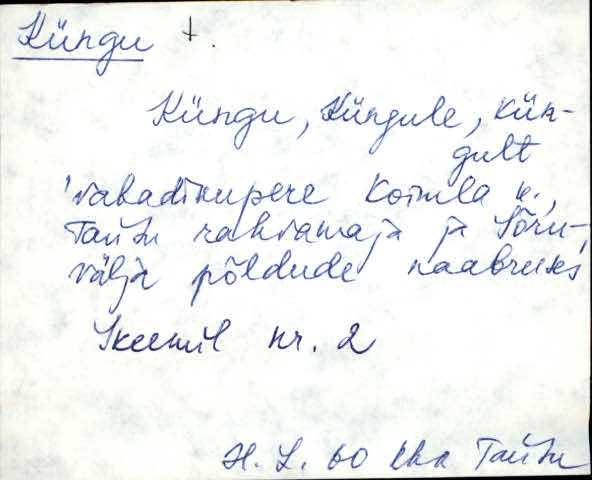 Küngu †.
Küngu, Küngule, Kün-
gult
'vabadikupere Koimla k.,
Tautsu rahvamaja ja Sõru-
välja põldude naabruses
Skeemil nr. 2
H. L. 60 kha